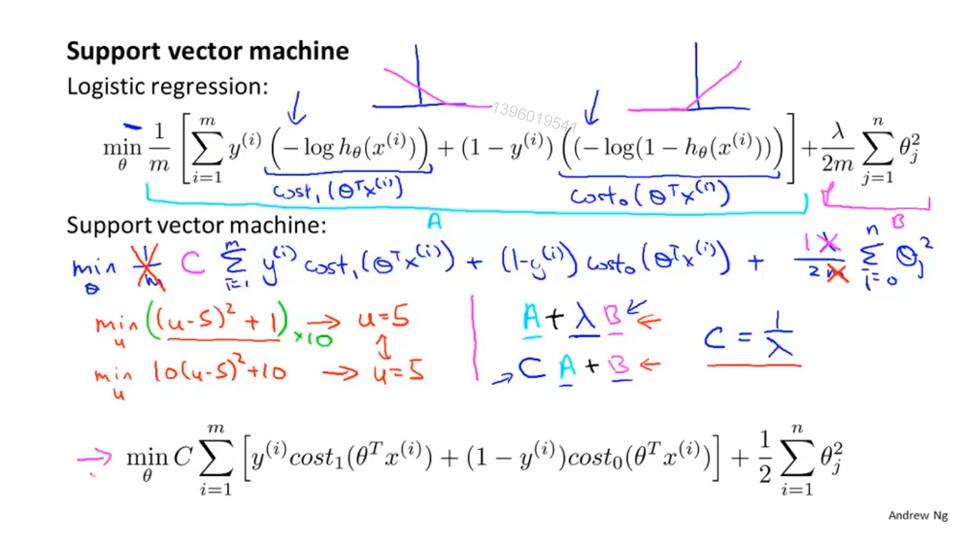 Support vector machine
Logistic regression:
1396019541
min_θ 1/m [ ∑_{i=1}^{m} y^{(i)} (−log h_θ(x^{(i)})) + (1 − y^{(i)}) ((−log(1 − h_θ(x^{(i)}))) ] + λ/2m ∑_{j=1}^{n} θ_j^2
cost₁(θᵀx^{(i)}) cost₀(θᵀx^{(i)})
A B
Support vector machine:
min_θ 1/m C ∑_{i=1}^{m} y^{(i)} cost₁(θᵀx^{(i)}) + (1−y^{(i)}) cost₀(θᵀx^{(i)}) + 1 λ/2m ∑_{i=0}^{n} θ_j^2
min_u ((u−5)² + 1) ×10 → u=5
min_u 10(u−5)² + 10 → u=5
A + λ B ←
→ C A + B ←
C = 1/λ
→ min_θ C ∑_{i=1}^{m} [ y^{(i)} cost₁(θᵀx^{(i)}) + (1 − y^{(i)}) cost₀(θᵀx^{(i)}) ] + 1/2 ∑_{i=1}^{n} θ_j^2
Andrew Ng